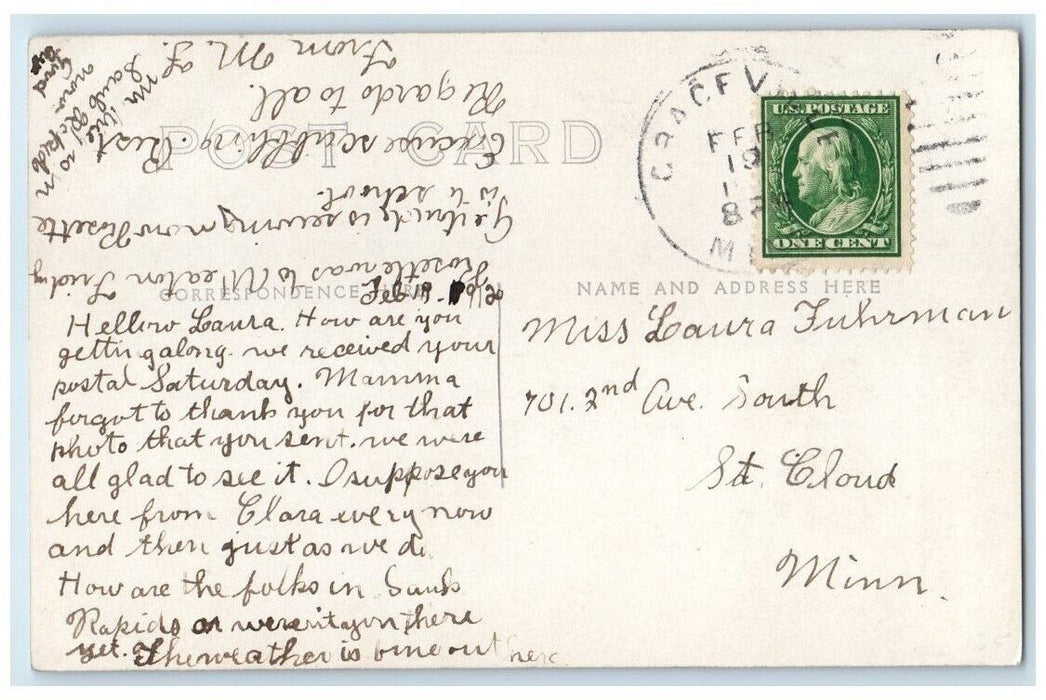 POST CARD
CORRESPONDENCE HERE
NAME AND ADDRESS HERE
GRACEVILLE
FEB
19
8
M
U.S. POSTAGE
ONE CENT
Miss Laura Fuhrman
701. 2nd Ave. South
St. Cloud
Minn.
Feb 19.
Hellow Laura. How are you
gettin galong. we received your
postal Saturday. Mamma
forgot to thank you for that
photo that you sent. we were
all glad to see it. I suppose you
here from Clara every now
and then just as we do.
How are the folks in Sauk
Rapids or weren't you there
yet. The weather is bine out here
Rosette was to Wheaton Friday
Gertrude is sewing now Rosette
is to school.
Excuse scabbling. Rest
Regards to all.
From M. F.